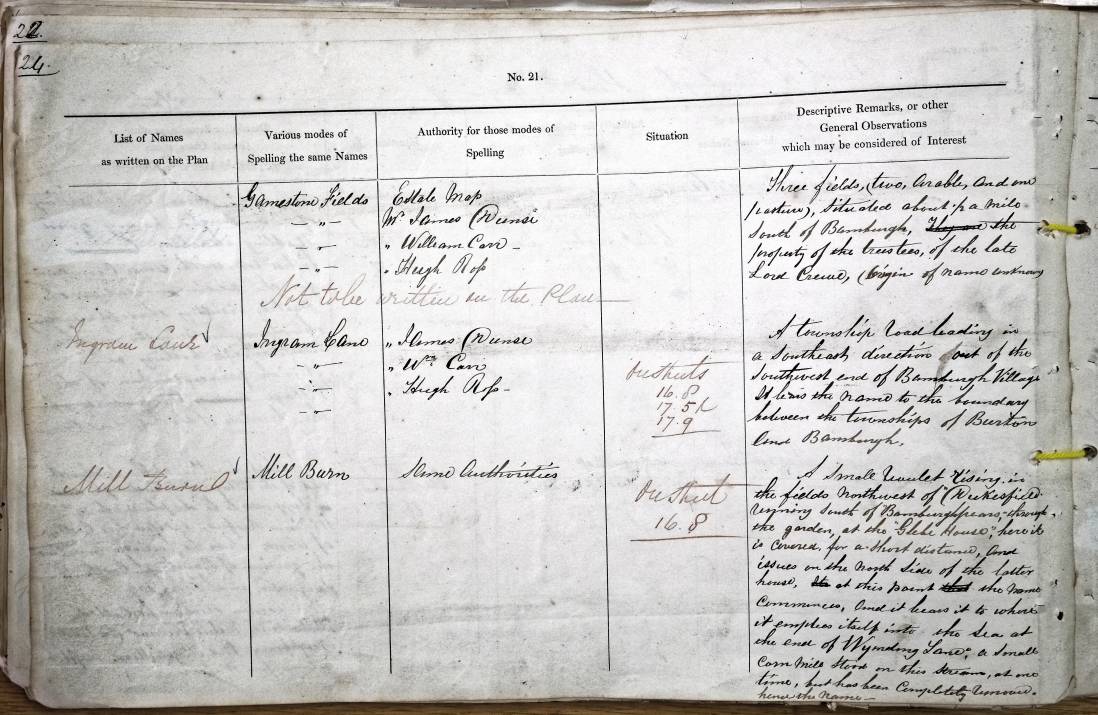 22.
24.
No. 21.
List of Names
as written on the Plan
Various modes of
Spelling the same Names
Authority for those modes of
Spelling
Situation
Descriptive Remarks, or other
General Observations
which may be considered of Interest
Gamestone Fields
Estate Map
Mr. James
" William Carr
" Hugh Ross
Not to be written on the Plan
Three fields, (two, Arable, and one
pasture), situated about ½ a mile
South of Bamburgh, They are the
property of the trustees, of the late
Lord Crewe, (origin of name unknown
Ingram Lane
Ingram Lane
" James
" Wm. Carr
" Hugh Ross
On Sheets
16.8
17.5
17.9
A township road leading in
a Southeast direction out of the
Southwest end of Bamburgh Village
It bears the name to the boundary
between the townships of Burton
and Bamburgh.
Mill Burn
Mill Burn
Same Authorities
On Sheet
16.8
A Small rivulet rising in
the fields Northwest of
running South of through
the garden, at the "Glebe House", here it
is covered, for a short distance, and
issues on the North side of the latter
house, at this point that the name
Commences, and it bears it to where
it empties itself into the Sea at
the end of Wynding Lane", a Small
Corn Mill Stood on this Stream, at one
time, but has been Completely removed.
hence the name